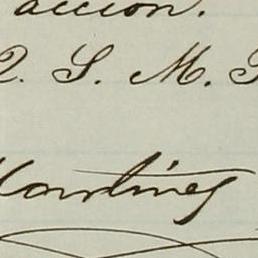 accion.
Q. S. M. B
Martinez